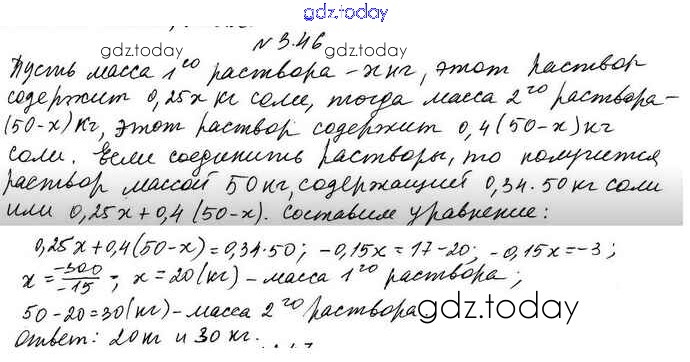 gdz.today
№ 3.46
gdz.today gdz.today
Пусть масса 1го раствора – x кг, этот раствор
содержит 0,25x кг соли, тогда масса 2го раствора –
(50-x) кг, этот раствор содержит 0,4(50-x) кг
соли. Если соединить растворы, то получится
раствор массой 50 кг, содержащий 0,34·50 кг соли
или 0,25x+0,4(50-x). Составим уравнение:
0,25x+0,4(50-x)=0,34·50; -0,15x=17-20; -0,15x=-3;
x=-300/-15; x=20(кг) – масса 1го раствора;
50-20=30(кг) – масса 2го раствора
gdz.today
Ответ: 20кг и 30 кг.